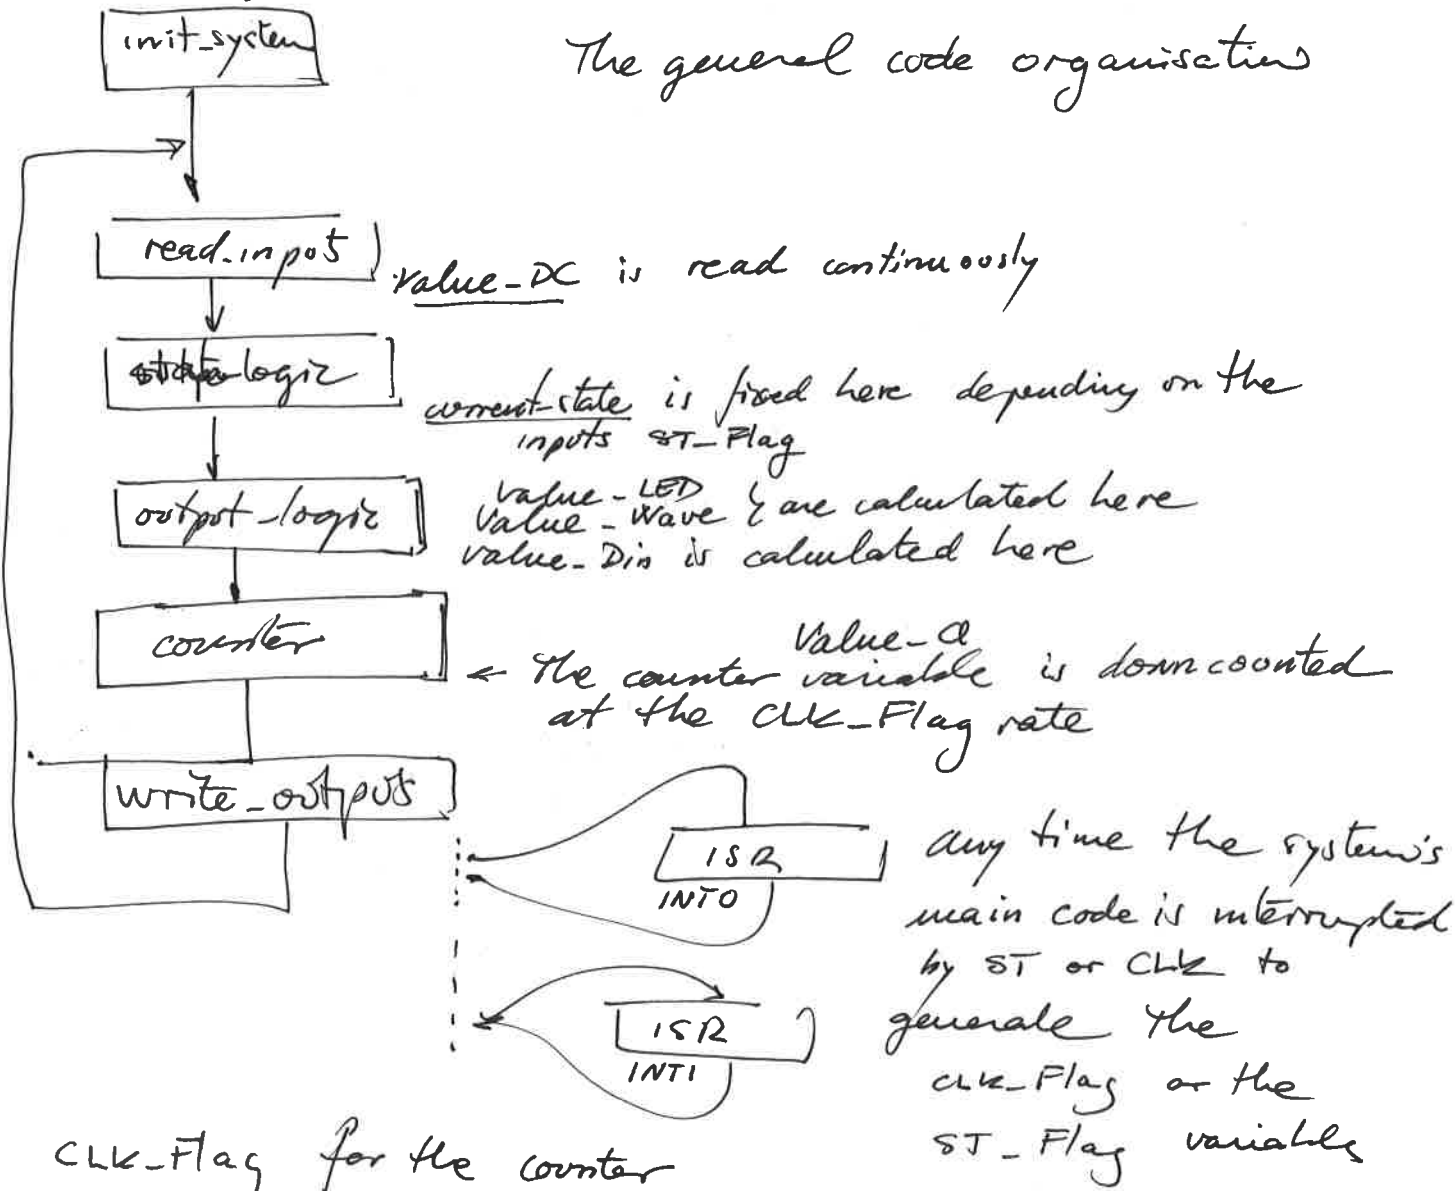 init_system
The general code organisation
read_inputs
value_DC is read continuously
state_logic
current_state is fixed here depending on the
inputs ST_Flag
output_logic
value_LED
Value_Wave } are calculated here
value_Din is calculated here
counter
Value_Q
← The counter variable is down counted
at the CLK_Flag rate
write_outputs
ISR
INT0
any time the system's
main code is interrupted
by ST or CLK to
generate the
CLK_Flag or the
ST_Flag variables
ISR
INT1
CLK_Flag for the counter